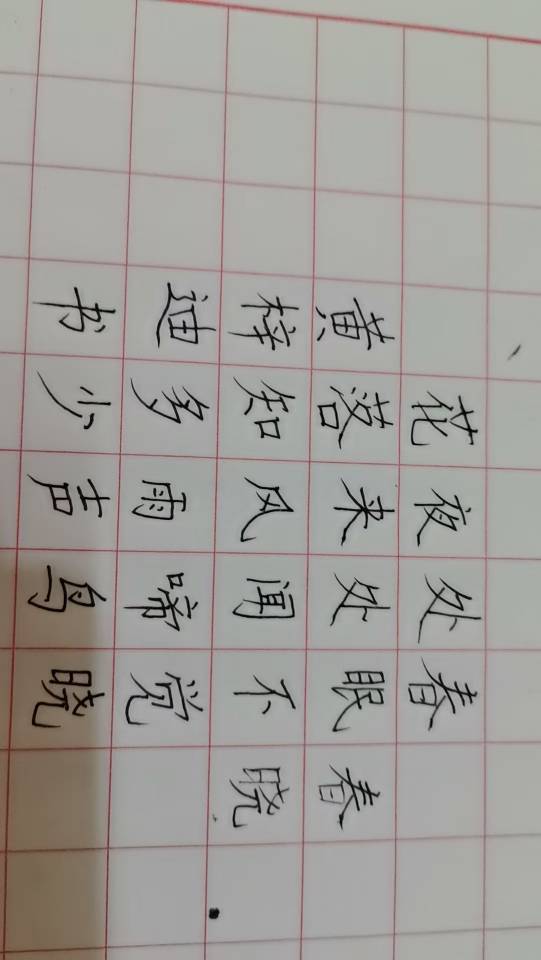 春晓
春眠不觉晓
处处闻啼鸟
夜来风雨声
花落知多少
黄梓迪书